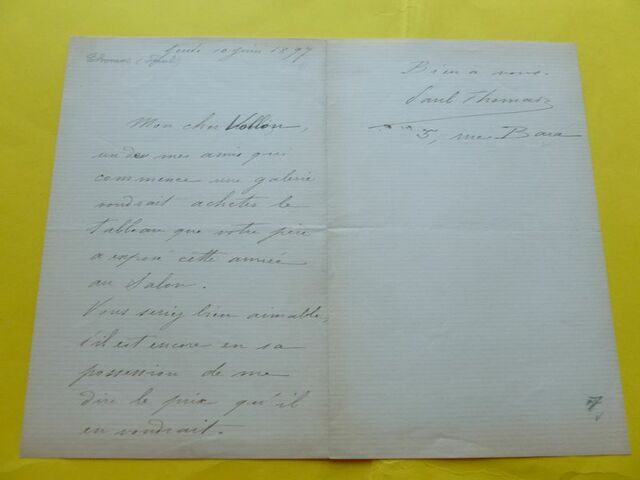 Jeudi 10 juin 1897
Thomas (Paul)
Mon cher Vollon,
un des mes amis qui
commence une galerie
voudrait acheter le
tableau que votre père
a exposé cette année
au Salon.
Vous seriez bien aimable,
s'il est encore en sa
possession de me
dire le prix qu'il
en voudrait.
Bien à vous.
Paul Thomas
5, rue Bara